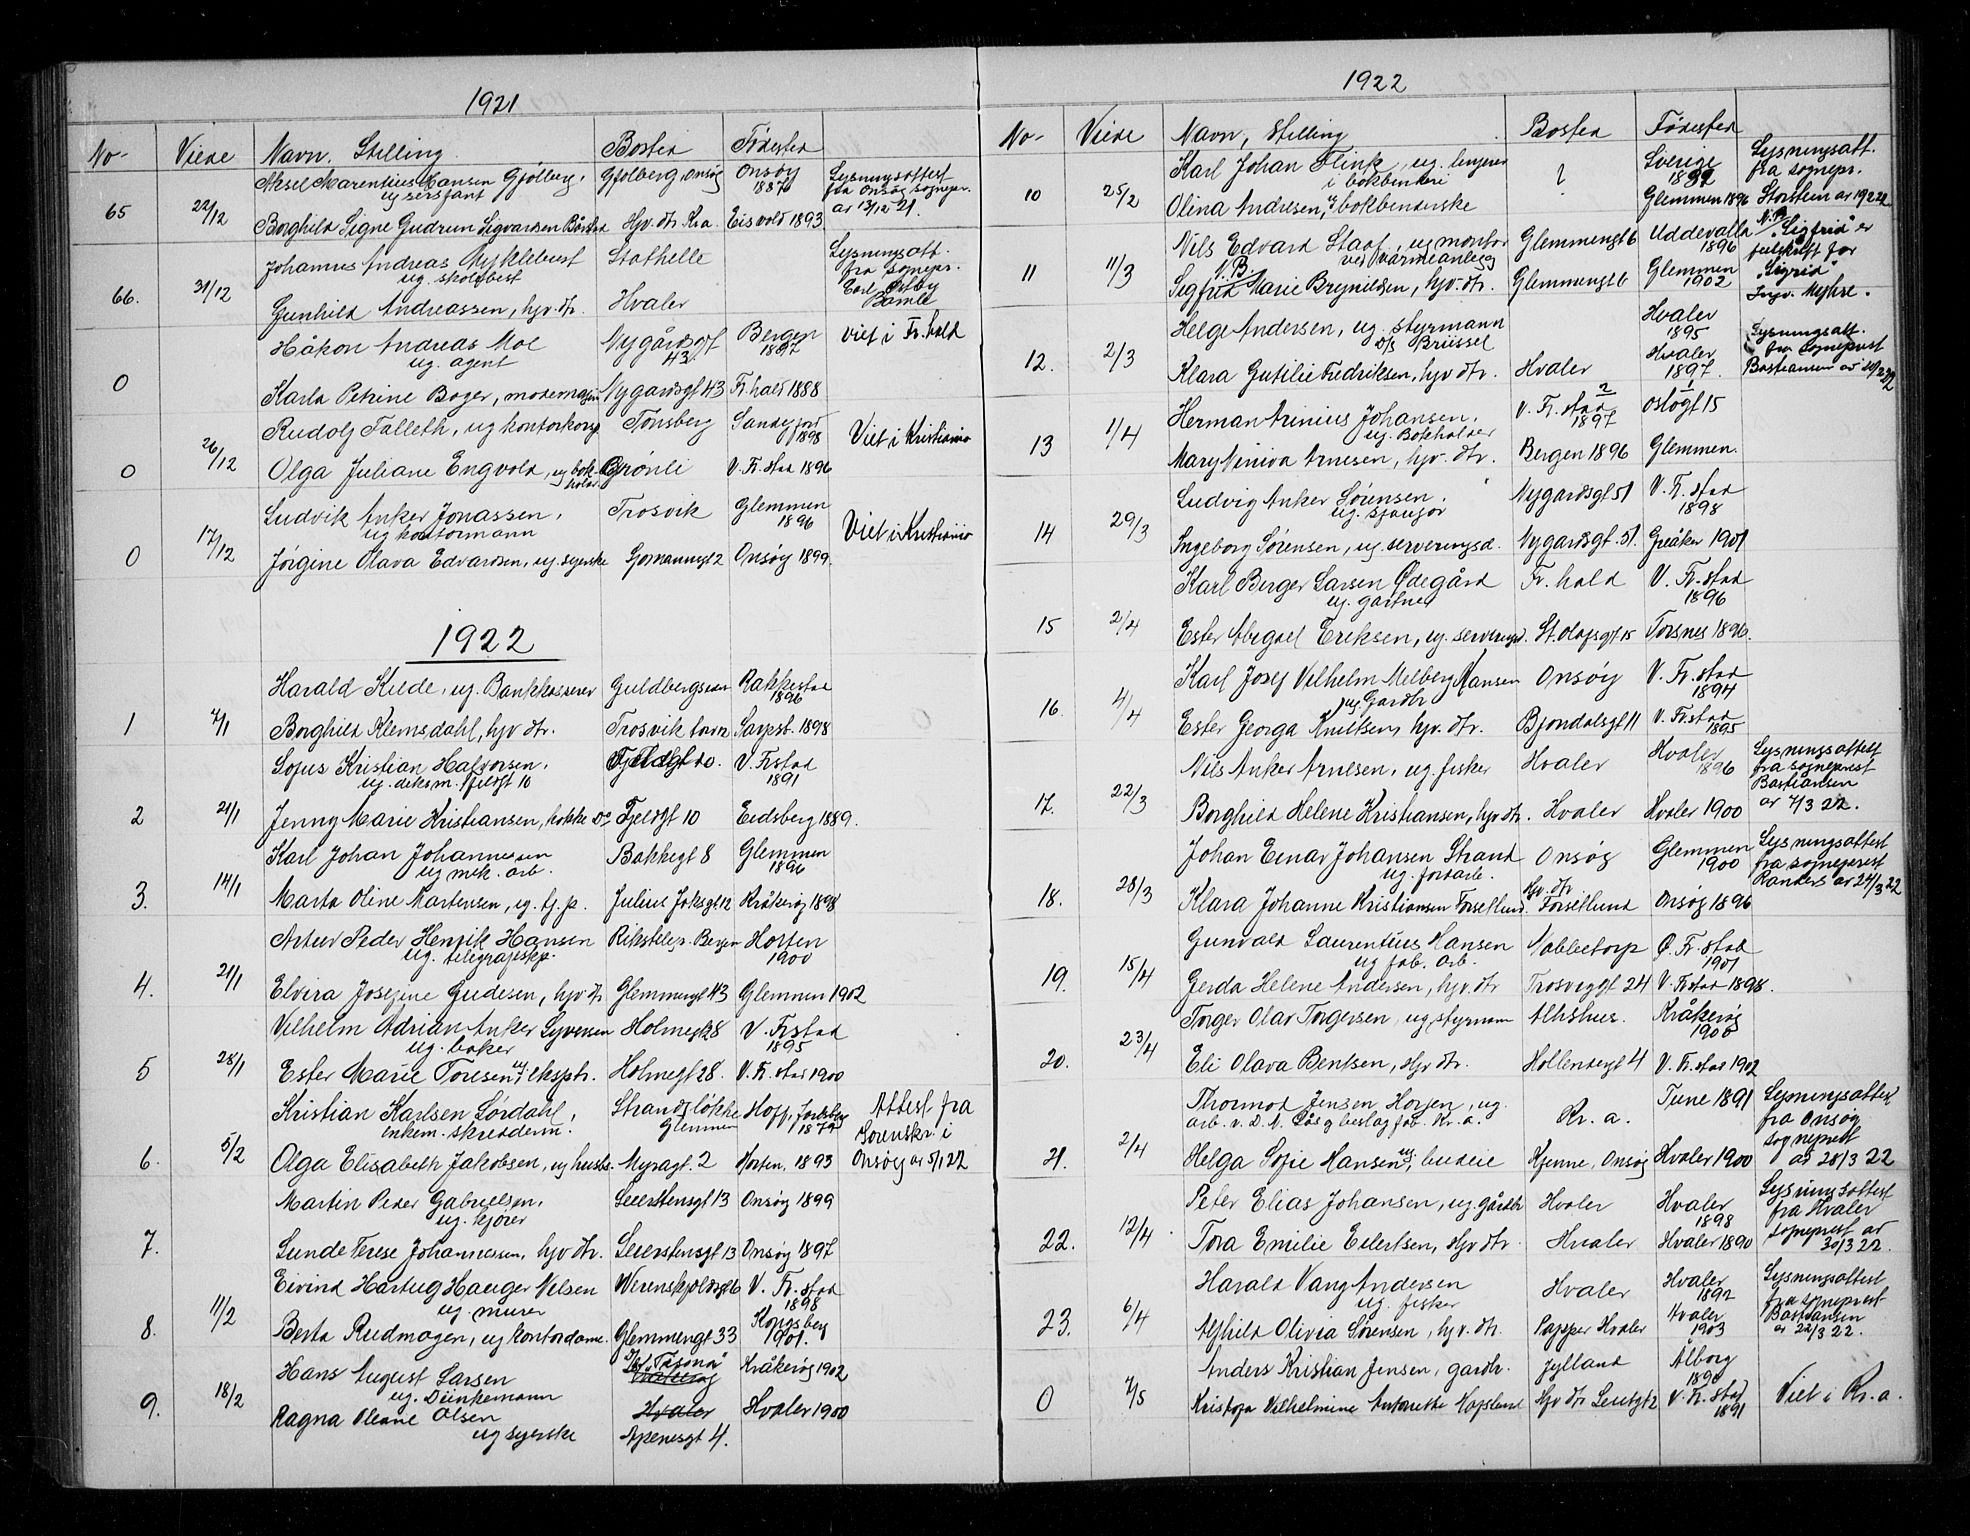 1921
No- Viede Navn, Stilling Bosted Fødested
Aksel Marentius Hansen Gjølberg, Gjølberg, Onsøy Onsøy Lysningsattest
ug sersjant 1887 fra Onsøy sognepr.
65 22/12 av 13/12 21.
Borghild Signe Gudrun Sigvardsen Hjv. dtr. Kra. Eisvold 1893
Johannes Andreas Myklebust Stathelle Lysningsatt.
ug. skolebest fra sognepr.
66. 31/12 Gunhild Andreassen, hjv. dtr. Hvaler Bamle
Håkon Andreas Moe Nygårdsgt Bergen viet i Fr.hald
ug. agent 43 1897
0
Karla Petrine Boger, Nygårdsgt 43 Fr.hald 1888
Rudolf Falleth, ug kontorkorsp Tønsberg Sandefjord
1898 Viet i Kristiania
0 26/12 Olga Juliane Engvold, ug bok- Grønli V. Fr. stad 1896
holder
Ludvik Anker Jonassen, Trosvik Glemmen
ug kontormann 1896 Viet i Kristiania
0 17/12 Jørgine Olava Edvardsen, ug. syerske Onsøy 1899.
1922
Harald Kilde, ug. Bankkasserer Guldbergsveien Rakkestad
1896
1 7/1 Borghild Klemsdahl, hjv dtr. Trosvik Sarpsb. 1898
Sofus Kristian Halvorsen, Fjeldgt 10. V. Fr stad
ug. deksm. Fjeldgt 10 1891
2 21/1 Jenny Marie Kristiansen, Fjeldgt 10 Eidsberg 1889.
Karl Johan Johannessen Bakkegt 8 Glemmen
ug mek. arb. 1896
3. 14/1 Marta Oline Martensen, ug. tj. p. Julius Jaksgt 12 Kråkerøy 1898
Artur Peder Henrik Hansen Rikstelegr. Bergen Horten
ug. telegrafeksp. 1900
4. 21/1 Elvira Josefine Gudesen, hjv dtr Glemmengt 43 Glemmen 1902
Vilhelm Adrian Anker Syversen Holmegt 28 V. Fr stad
ug. baker 1895
5 28/1 Ester Marie Toresen ug eksptr. Holmegt 28. V. Fr. stad 1900
Kristian Karlsen Sørdahl, Strandsløkke Hoff, Jarlsberg Attest fra
enkem. skredderm. Glemmen 1874 Sorenskr. i
6. 5/2 Olga Elisabeth Jakobsen, ug husb. Myragt. 2 Horten, 1893 Onsøy av 5/1 22
Martin Peder Gabrielsen, Seierstensgt 13 Onsøy 1899
ug. kjører
7. Sunde Terese Johannessen, hjv dtr. Seierstensgt 13 Onsøy 1897
Eivind Hartvig Hauger Nilsen Werenskjoldsgt 6 V. Fr. stad
ug. murer 1898
8. 11/2 Berta Rudmogen, ug kontordame. Glemmengt 33 Kongsberg
1901.
Hans August Larsen Kråkerøy 1902
ug. Dunkemann
9. 18/2 Ragna Oleane Olsen Hvaler Hvaler 1900
ug syerske Apenesgt 4.
1922
No- Viede Navn, Stilling Bosted Fødested
Karl Johan Flink, ug. linjerer ? Sverige Lysningsatt.
i bokbinderi 1892 fra sognepr.
10 25/2 Olina Andresen, ug bokbinderske Glemmen 1896 Storstein av 19/2 22
Nils Edvard Staaf, ug montør Glemmengt 6 Uddevalla N.B. "Sigfrid" er
ved varmeanlegg 1896 feilskrift for
11 11/3 N.B. Sigfrid Marie Brynildsen, hjv. dtr. Glemmengt 6 Glemmen "Sigrid"
1902 Ingv. Myhre.
Helge Andersen, ug. styrmann Hvaler
D/S Brüssel 1895 Lysningsatt.
12. 2/3 Klara Gutilie Fredriksen, hjv dtr. Hvaler Hvaler fra sogneprest
1897 Bastiansen av 20/2 22
Herman Arinius Johansen, V. Fr. stad Oslogt 15
ug. Bokholder 1897
13 1/4 Mary Ninive Arnesen, hjv. dtr. Bergen 1896 Glemmen.
Ludvig Anker Sørensen. Nygårdsgt 51 V. Fr. stad
ug. sjauer 1898
14 29/3 Ingeborg Sørensen, ug. serveringsd. Nygårdsgt. 51. Greåker 1901
Karl Berger Larsen Ødegård Fr. hald V. Fr. stad
ug. gartner 1896
15 2/4 Ester Abigael Eriksen, ug. serveringsd. St. Olafsgt 15 Torsnes 1896.
Karl Josef Vilhelm Melberg Hansen Onsøy V. Fr. stad
ug. Gårdbr 1894
16. 4/4 Ester Georga Knutsen, hjv. dtr. Bjørndalsgt 11 V. Fr. stad
1895
Nils Anker Arnesen, ug. fisker Hvaler Hvaler Lysningsattest
1896 fra sogneprest
Bastiansen
17. 22/3 Borghild Helene Kristiansen, hjv dtr. Hvaler Hvaler 1900 av 7/3 22.
Johan Einar Johansen Strand Onsøy Glemmen Lysningsattest
ug. forarb. 1900 fra sogneprest
18. 28/3 Klara Johanne Kristiansen Forsetlund. Hjv. dtr Forsetlund Onsøy 1896 Randers av 24/3 22
Gunvald Laurentius Hansen Nabbetorp Ø. Fr. stad
ug fab. arb. 1901
19. 15/4 Gerda Helene Andersen, hjv. dtr Trosviggt 24 V. Fr stad 1898.
Torger Olav Torgersen, ug styrmann Athshus. Kråkerøy
1900
20. 23/4 Eli Olava Bentsen, Hjv dtr. Hollendergt 4 V. Fr. stad 1902
Thormod Jensen Horgen, ug. Kr. a. Tune 1891 Lysningsattest
arb. v. D. N. Lås og beslagfab. Kr. a. fra Onsøy
sogneprest
21. 2/4 Helga Sofie Hansen ug. budeie Kjenne, Onsøy Hvaler 1900 av 28/3 22
Peter Elias Johansen, ug. gårdbr Hvaler Hvaler Lysningsattest
1898 fra Hvaler
22. 12/4 Tora Emilie Eilertsen, Hjv dtr. Hvaler Hvaler 1890 sogneprest av
30/3 22.
Harald Vang Andersen Hvaler Hvaler Lysningsattest
ug. fisker 1892 fra sogneprest
23. 6/4 Alfhild Olivia Sørensen, hjv. dtr. Papper Hvaler Hvaler Bastiansen
1903 av 22/3 22.
Anders Kristian Jensen, gårdbr. Jylland Ålborg
1890
0 7/5 Kristofa Vilhelmine Antonette Hafslund Hjv dtr V. Fr. stad Viet i Kr. a.
1891